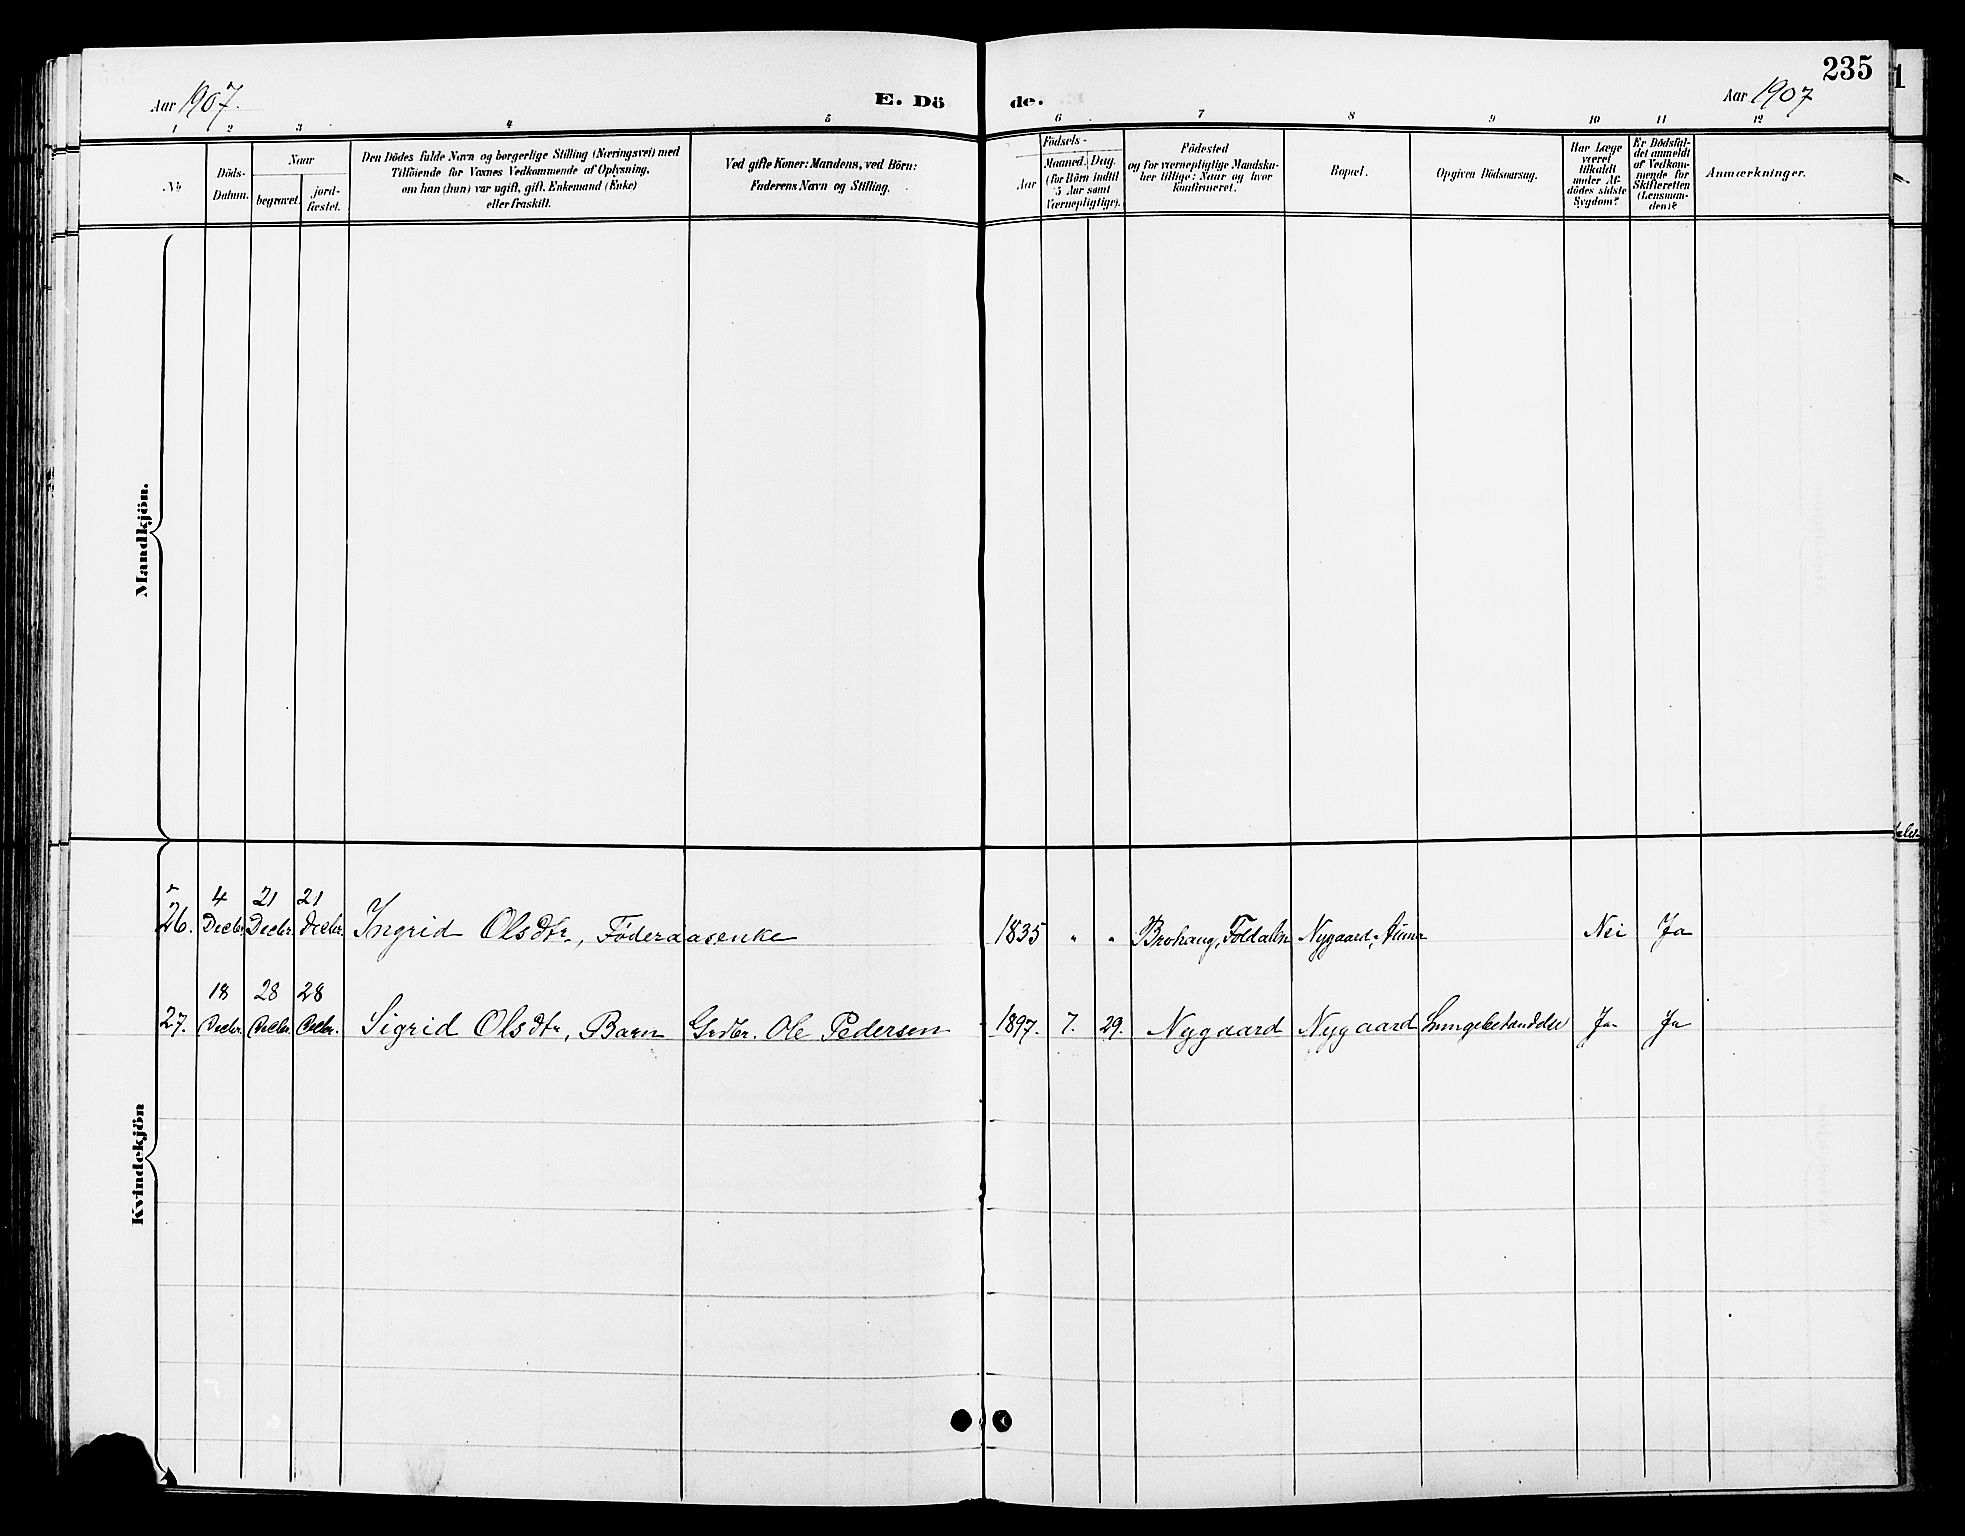 235
Aar 1907. E. Dö de. Aar 1907
1 2 3 4 5 6 7 8 9 10 11 12
No.
Döds-
Datum.
Naar
begravet.
jord-
fæstet.
Den Dödes fulde Navn og borgerlige Stilling (Næringsvei) med
Tilföiende for Voxnes Vedkommende af Oplysning,
om han (hun) var ugift, gift, Enkemand (Enke)
eller fraskilt.
Ved gifte Koner: Mandens, ved Börn:
Faderens Navn og Stilling.
Födsels-
Aar
Maaned. Dag.
(for Börn indtil
5 Aar samt
Værnepligtige).
Födested
og for værnepligtige Mandska-
ber tillige: Naar og hvor
konfirmeret.
Bopæl.
Opgiven Dödsaarsag.
Har Læge
været
tilkaldt
under Af-
dödes sidste
Sygdom?
Er Dödsfal-
det anmeldt
af Vedkom-
mende for
Skifteretten
(Lensman-
den)?
Anmærkninger.
Mandkjön.
Kvindekjön
4 21 21
26. Decbr. Decbr. Decbr. Ingrid Olsdtr., Föderaasenke 1835 " " Brohaug, Foldalen Nygaard, Nei Ja
18 28 28
27. Decbr. Decbr. Decbr. Sigrid Olsdtr, Barn Grdbr. Ole Pedersen 1897. 7. 29. Nygaard Nygaard Ja Ja